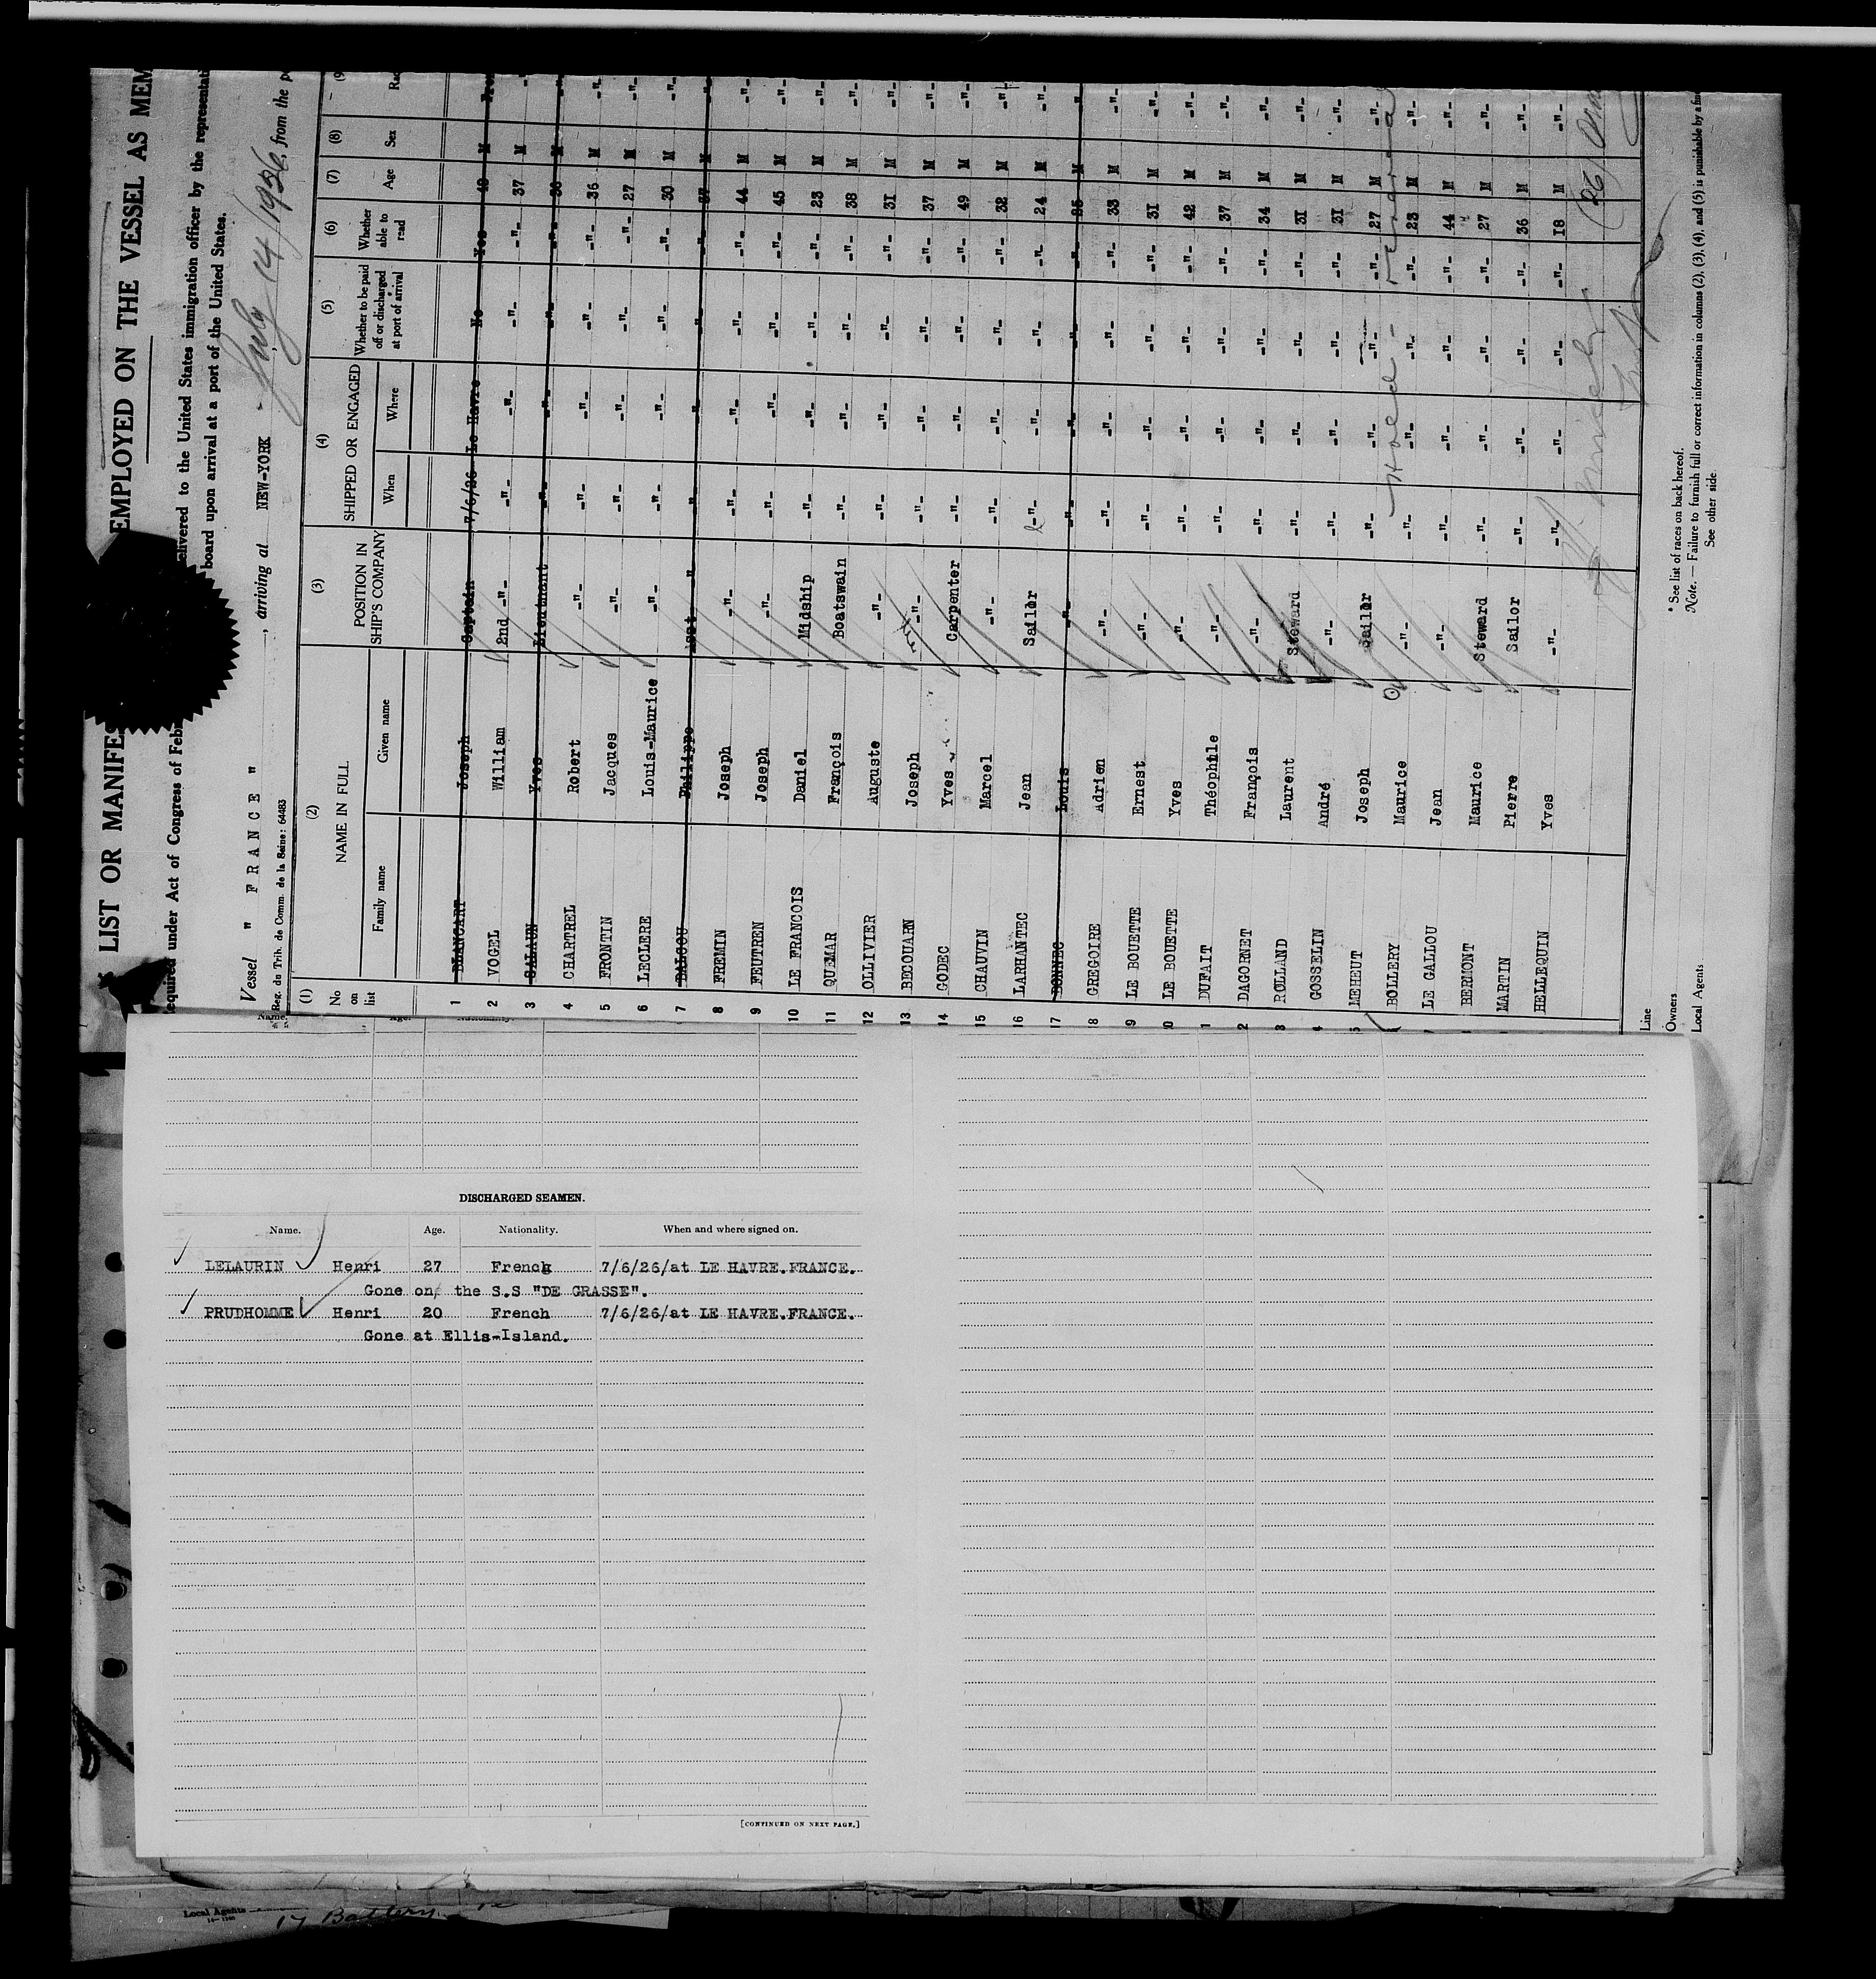 LIST OR MANIFES
EMPLOYED ON THE VESSEL AS MEM
equired under Act of Congress of Feb
elivered to the United States immigration officer by the representati
board upon arrival at a port of the United States.
Vessel " FRANCE " , arriving at NEW-YORK July 14/1926, from the p
Reg. du Trib. de Comm. de la Seine: 64483
(1) (2) (3) (4) (5) (6) (7) (8) (9
No on list NAME IN FULL POSITION IN SHIP'S COMPANY SHIPPED OR ENGAGED Whether to be paid off or discharged at port of arrival Whether able to read Age Sex Rac
Family name Given name When Where
1 BLANCART Joseph Captain 7/6/26 Le Havre No Yes 49 M Fren
2 VOGEL William 2nd -"- -"- -"- -"- -"- 37 M -"
3 SALAUN Yves Lieutnant -"- -"- -"- -"- 36 M -"-
4 CHARTREL Robert -"- -"- -"- -"- -"- 36 M -"-
5 FRONTIN Jacques -"- -"- -"- -"- -"- 27 M -"-
6 LECLERE Louis-Maurice -"- -"- -"- -"- -"- 30 M -"-
7 DALSOU Philippe Asst " -"- -"- -"- -"- 37 M -"-
8 FREMIN Joseph -"- -"- -"- -"- -"- 44 M -"-
9 FEUTREN Joseph -"- -"- -"- -"- -"- 45 M -"-
10 LE FRANCOIS Daniel Midship -"- -"- -"- -"- 23 M -"-
11 QUEMAR François Boatswain -"- -"- -"- -"- 38 M -"-
12 OLLIVIER Auguste -"- -"- -"- -"- -"- 31 M -"-
13 BECOUARN Joseph -"- -"- -"- -"- -"- 37 M -"-
14 GODEC Yves Carpenter -"- -"- -"- -"- 49 M -"-
15 CHAUVIN Marcel -"- -"- -"- -"- -"- 32 M -"-
16 LARHANTEC Jean Sailor -"- -"- -"- -"- 24 M -"-
17 DONNEC Louis -"- -"- -"- -"- -"- 25 M -"-
8 GREGOIRE Adrien -"- -"- -"- -"- -"- 33 M -"-
9 LE BOUETTE Ernest -"- -"- -"- -"- -"- 31 M -"-
0 LE BOUETTE Yves -"- -"- -"- -"- -"- 42 M -"-
1 DUFAIT Théophile -"- -"- -"- -"- -"- 37 M -"-
2 DAGORNET François -"- -"- -"- -"- -"- 34 M -"-
3 ROLLAND Laurent Steward -"- -"- -"- -"- 31 M -"-
4 GOSSELIN André -"- -"- -"- -"- -"- 31 M -"-
5 MEHEUT Joseph Sailor -"- -"- -"- -"- 27 M -"-
BOLLERY Maurice -"- -"- -"- -"- -"- 23 M -"-
LE GALLOU Jean -"- -"- -"- -"- -"- 44 M -"-
BERMONT Maurice Steward -"- -"- -"- -"- 27 M -"-
MARTIN Pierre Sailor -"- -"- -"- -"- 36 M -"-
HELLEQUIN Yves -"- -"- -"- -"- -"- 18 M -"-
Line
Owners
Local Agents
* See list of races on back hereof.
Note. — Failure to furnish full or correct information in columns (2), (3), (4), and (5) is punishable by a fine
See other side.
DISCHARGED SEAMEN.
Name. Age. Nationality. When and where signed on.
LELAURIN Henri 27 French 7/6/26/at LE HAVRE.FRANCE.
Gone on the S.S "DE GRASSE".
PRUDHOMME Henri 20 French 7/6/26/at LE HAVRE.FRANCE.
Gone at Ellis-Island.
[CONTINUED ON NEXT PAGE.]
Local Agents
17 Battery